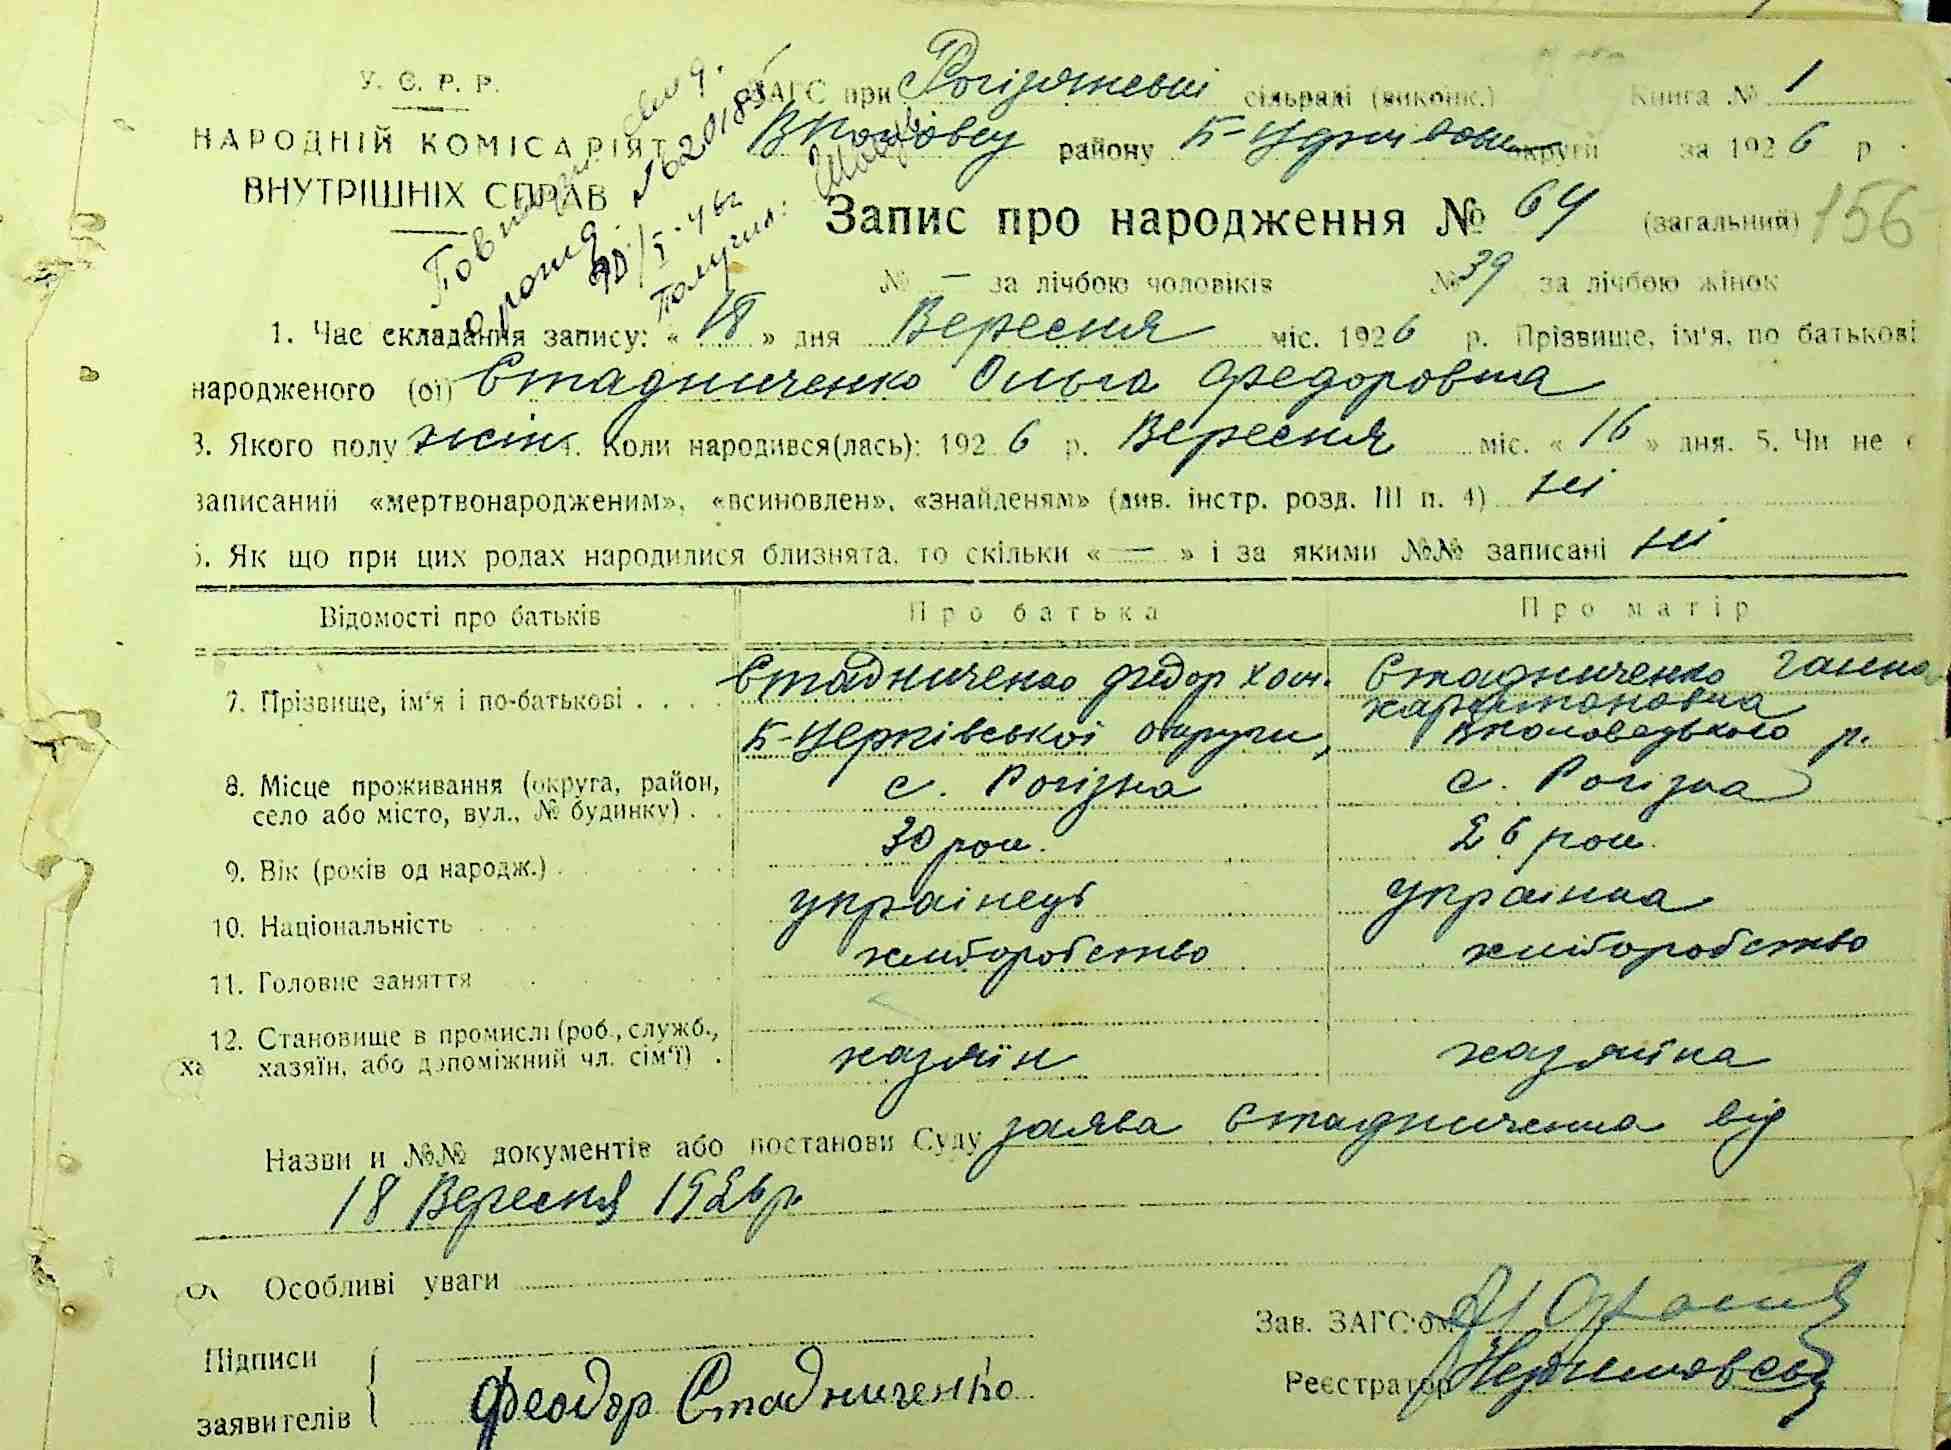 У. С. Р. Р.
НАРОДНІЙ КОМІСАРІЯТ
ВНУТРІШНІХ СПРАВ
ЗАГС при сільраді (виконк.) Книга № 1
району Б-Церківськ округи за 1926 р.
Запис про народження № 64 (загальний) 156
№ — за лічбою чоловіків № 39 за лічбою жінок
1. Час складання запису: « 18 » дня Вересня міс. 1926 р. Прізвище, ім'я, по батькові
народженого (ої) Стадниченко Ольга Федоровна
3. Якого полу жін 4. Коли народився(лась): 1926 р. Вересня міс. « 16 » дня. 5. Чи не є
записаний «мертвонародженим», «всиновлен», «знайденям» (див. інстр. розд. III п. 4) ні
6. Як що при цих родах народилися близнята, то скільки « — » і за якими №№ записані ні
Відомості про батьків Про батька Про матір
7. Прізвище, ім'я і по-батькові . . . . Стадниченко Федор Хом. Стадниченко Ганна
Харитоновна
Б-Церківської округи, р.
8. Місце проживання (округа, район, с. Рогізна с. Рогізна
село або місто, вул., № будинку) . .
9. Вік (років од народж.) 30 рок. 26 рок.
10. Національність українець українка
11. Головне заняття хліборобство хліборобство
12. Становище в промислі (роб., служб.,
хазяїн, або допоміжний чл. сім'ї) . хазяїн хазяїна
Назви и №№ документів або постанови Суду заява Стадниченка від
18 Вересня 1926 р.
Особливі уваги
Зав. ЗАГС'ом
Підписи
Реєстратор
заявителів Феодор Стадниченко
Повторн